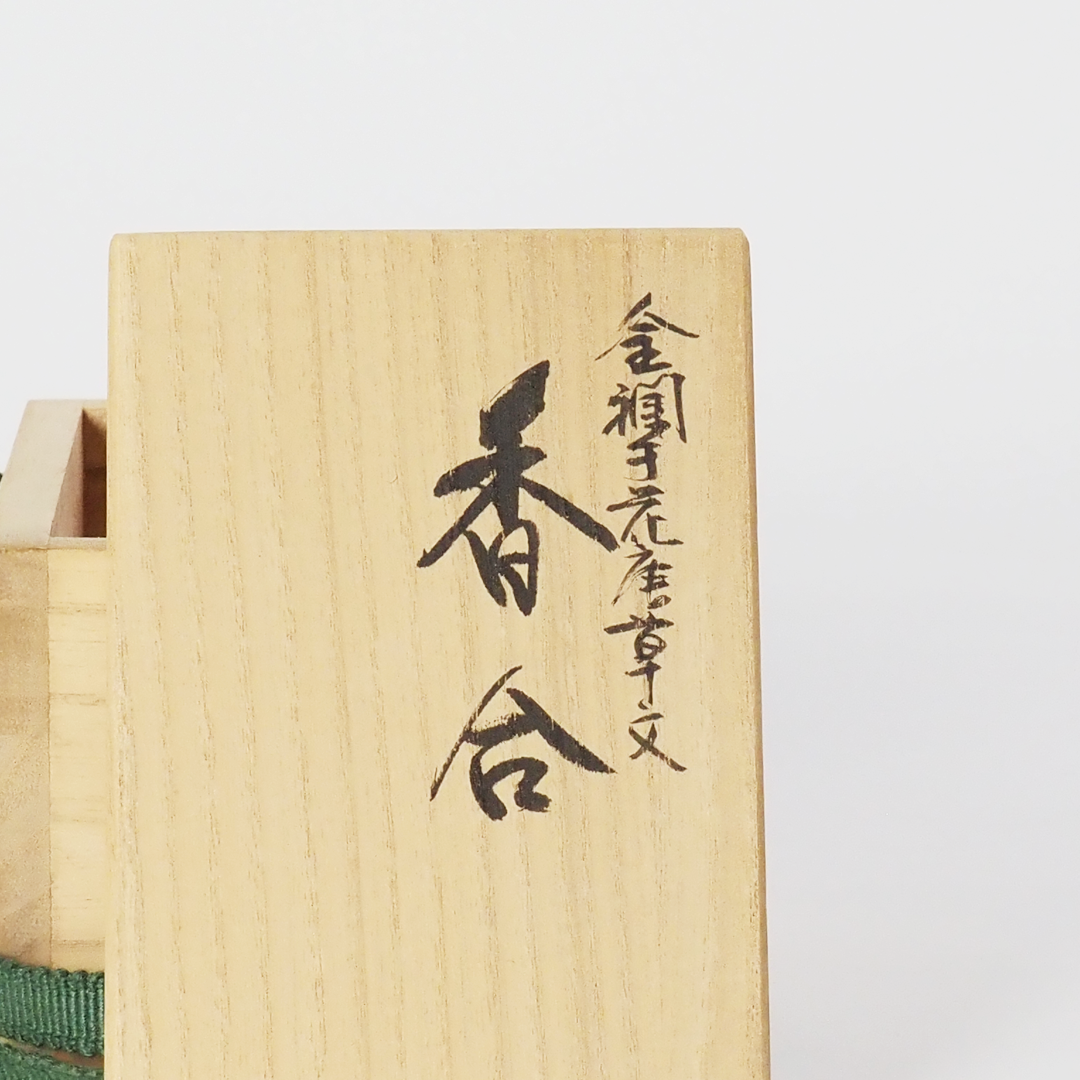 金襴手花唐草文
香合